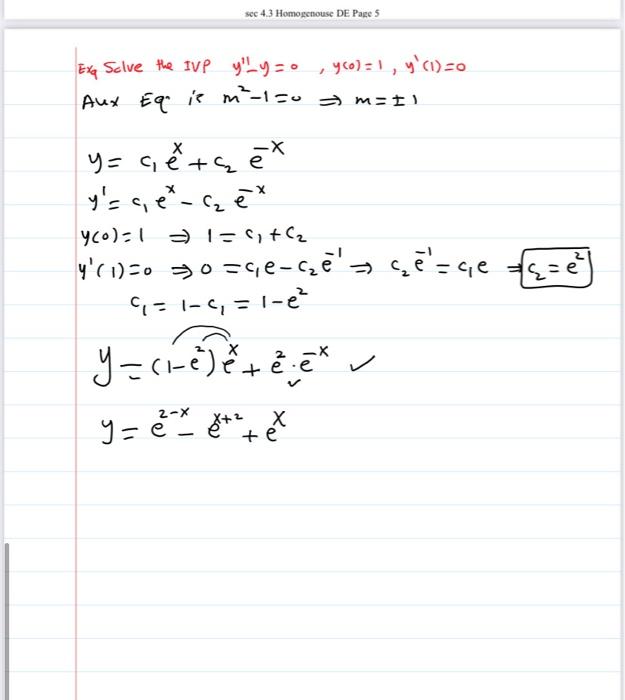 sec 4.3 Homogenouse DE Page 5
Exq Solve the IVP y''-y=0 , y(0)=1 , y'(1)=0
Aux Eqⁿ is m²-1=0 ⇒ m=±1
y= c₁eˣ+c₂ e⁻ˣ
y'= c₁eˣ- c₂ e⁻ˣ
y(0)=1 ⇒ 1= c₁+c₂
y'(1)=0 ⇒ 0 =c₁e-c₂e⁻¹ ⇒ c₂e⁻¹=c₁e ⇒ c₂=e²
c₁= 1-c₁ = 1-e²
y=(1-e²)eˣ+ e².e⁻ˣ ✓
✓
y= e²⁻ˣ- eˣ⁺²+eˣ